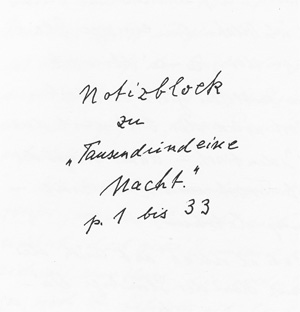 Notizblock
zu
„Tausendundeine
Nacht."
p. 1 bis 33